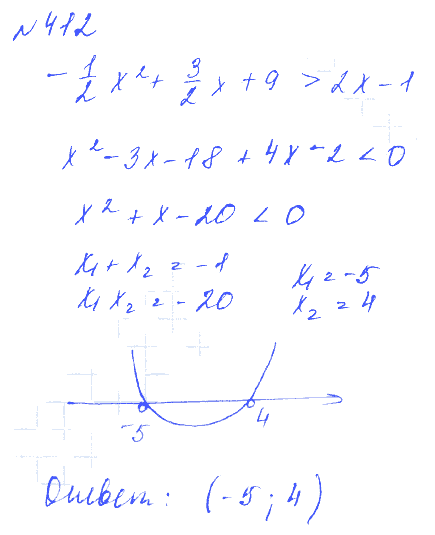 № 412
-1/2 x² + 3/2 x + 9 > 2x - 1
x² - 3x - 18 + 4x - 2 < 0
x² + x - 20 < 0
x₁ + x₂ = -1
x₁ x₂ = -20
x₁ = -5
x₂ = 4
-5 4
Ответ: (-5; 4)